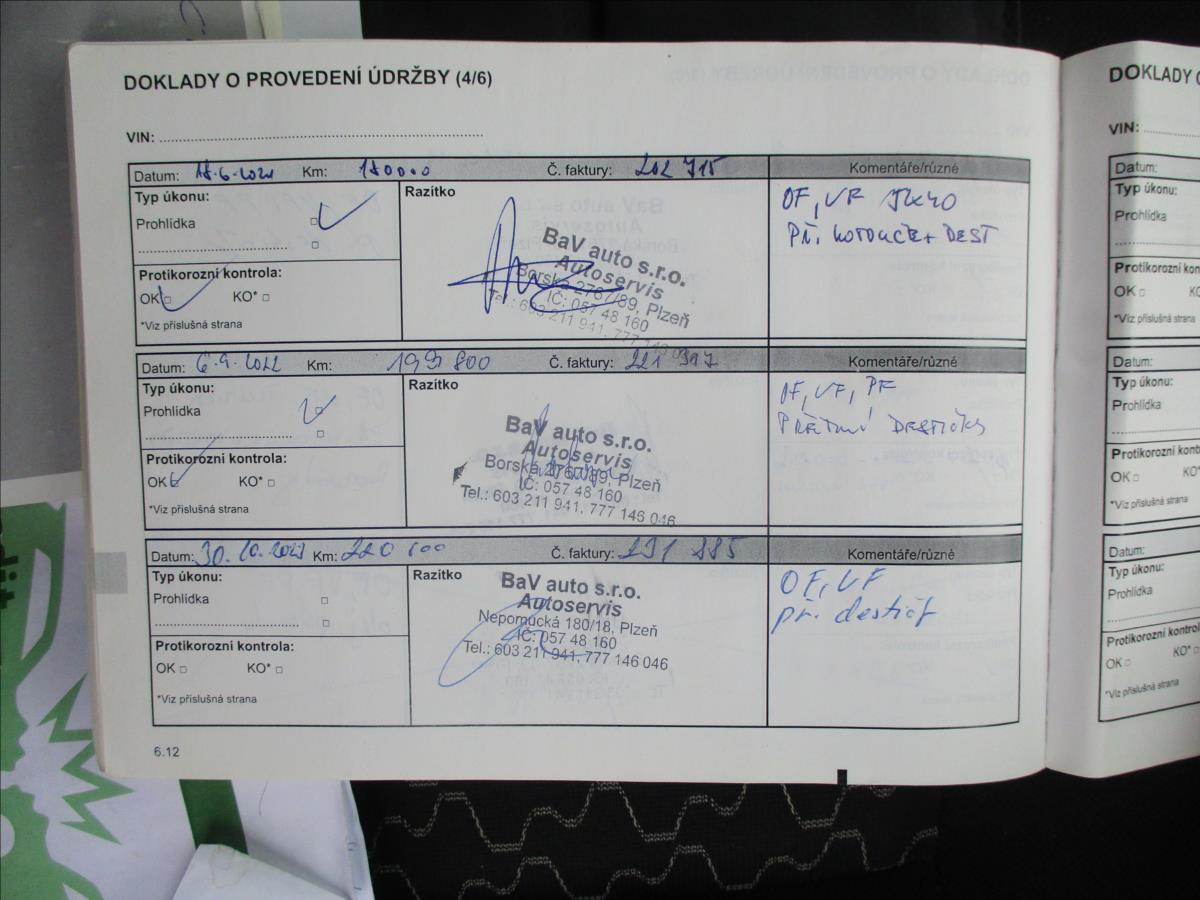 DOKLADY O PROVEDENÍ ÚDRŽBY (4/6)
VIN:
Datum: 18.6.2021 Km: 180000 Č. faktury: 202 715 Komentáře/různé
Typ úkonu:
Prohlídka
Razítko
BaV auto s.r.o.
Autoservis
Borská 2767/89, Plzeň
IČ: 057 48 160
Tel.: 603 211 941, 777 146 046
OF, VF 5W40
PŘ. KOTOUČE + DEST
Protikorozní kontrola:
OK KO*
*Viz příslušná strana
Datum: 6.9.2022 Km: 199 800 Č. faktury: 221 317 Komentáře/různé
Typ úkonu:
Prohlídka
Razítko
BaV auto s.r.o.
Autoservis
Borská 2767/89, Plzeň
IČ: 057 48 160
Tel.: 603 211 941, 777 146 046
OF, VF, PF
PŘETNÍ DESTIČKY
Protikorozní kontrola:
OK KO*
*Viz příslušná strana
Datum: 30.10.2023 Km: 220 000 Č. faktury: 231 885 Komentáře/různé
Typ úkonu:
Prohlídka
Razítko
BaV auto s.r.o.
Autoservis
Nepomucká 180/18, Plzeň
IČ: 057 48 160
Tel.: 603 211 941, 777 146 046
OF, VF
př. destič
Protikorozní kontrola:
OK KO*
*Viz příslušná strana
6.12
DOKLADY
VIN:
Datum:
Typ úkonu:
Prohlídka
Protikorozní
OK KO
*Viz příslušná strana
Datum:
Typ úkonu:
Prohlídka
Protikorozní
OK KO*
*Viz příslušná strana
Datum:
Typ úkonu:
Prohlídka
Protikorozní
OK KO*
*Viz příslušná strana